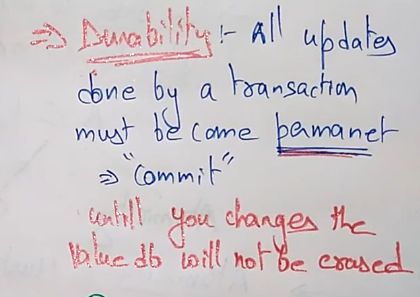 ⇒ Durability :- All updates
done by a transaction
must be come permanet
⇒ "Commit"
untill you changes the
value db will not be erased